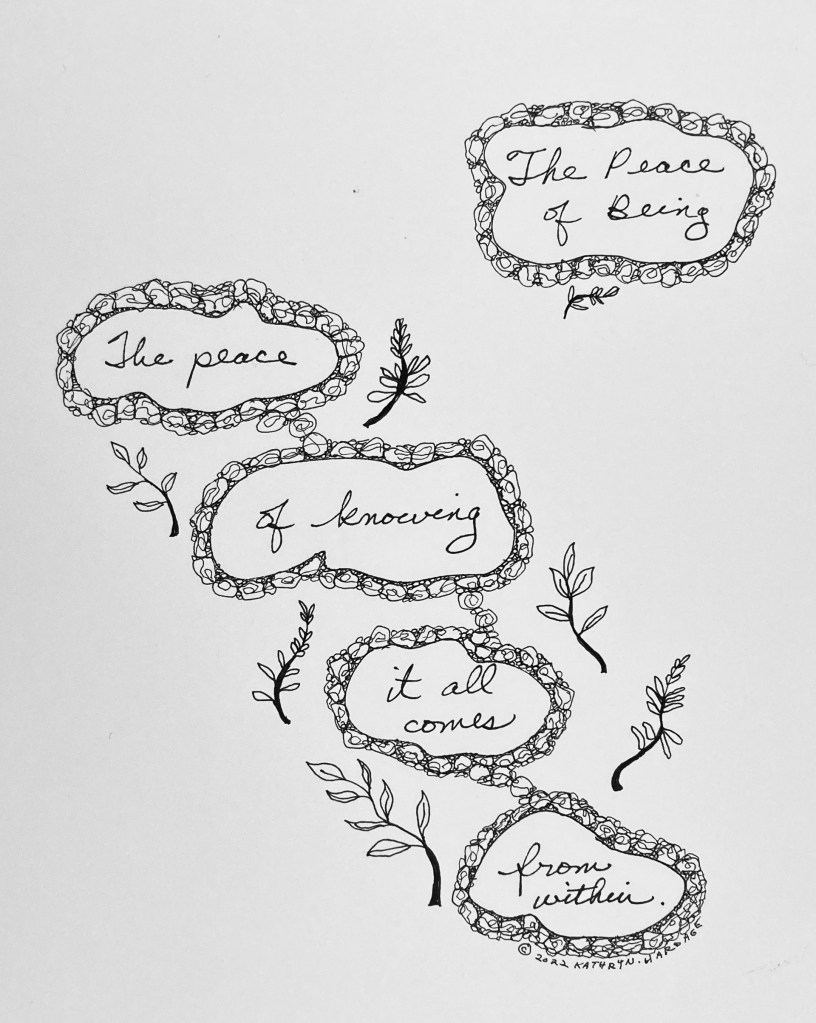 The Peace
of Being
The peace
of knowing
it all
comes
from
within.
© 2022 KATHRYN. HARDAGE